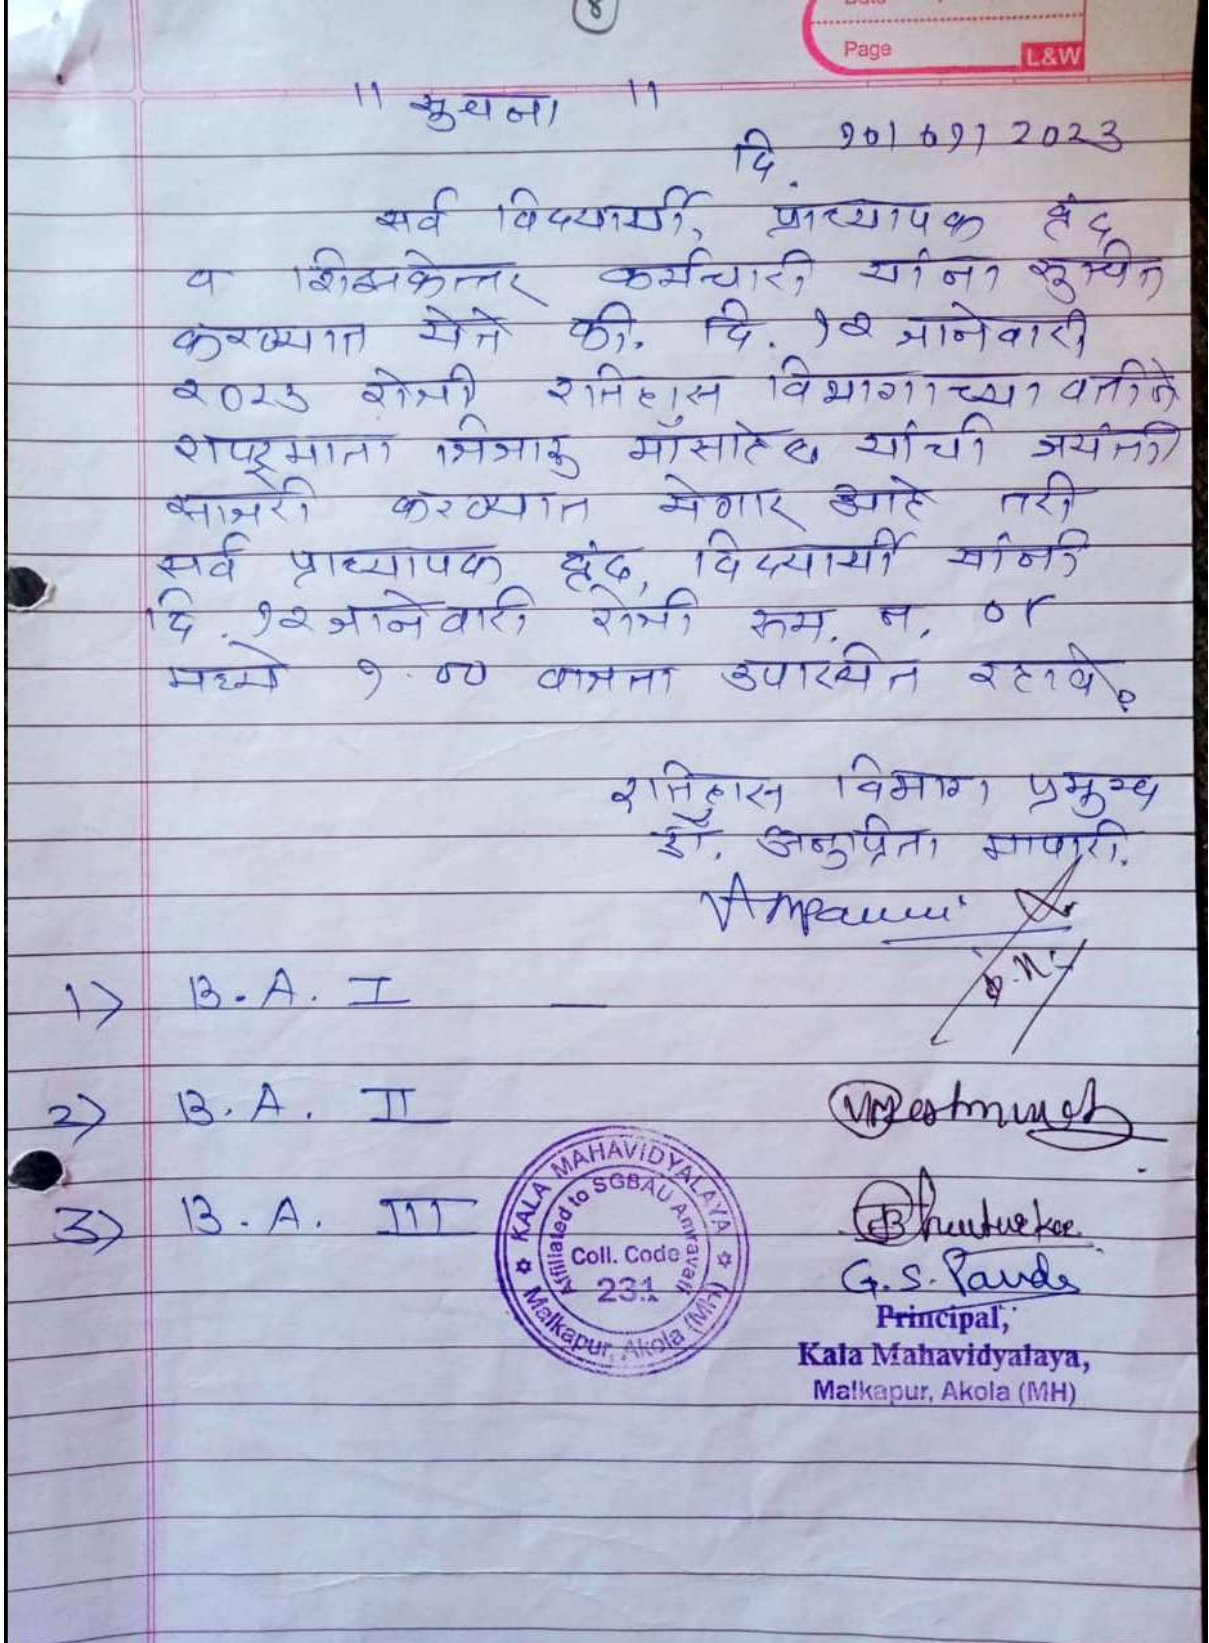 8
Date
Page
L&W
" सुचना "
दि. १०/०१/2023
सर्व विद्यार्थी, प्राध्यापक वृंद
व शिक्षकेत्तर कर्मचारी यांना सुचित
करण्यात येते की. दि. १२ जानेवारी
२०२३ रोजी इतिहास विभागाच्या वतीने
राष्ट्रमाता जिजाऊ माँसाहेब यांची जयंती
साजरी करण्यात येणार आहे तरी
सर्व प्राध्यापक वृंद, विद्यार्थी यांनी
दि. १२ जानेवारी रोजी रूम. न. ०४
मध्ये १.०० वाजता उपास्थित रहावे.
इतिहास विभाग प्रमुख
डॉ. अनुप्रिता मापारी.
1) B.A. I —
2) B.A. II
3) B.A. III
KALA MAHAVIDYALAYA
Affiliated to SGBAU Amravati
Coll. Code
231
Malkapur, Akola (MH)
G.S.
Principal,
Kala Mahavidyalaya,
Malkapur, Akola (MH)